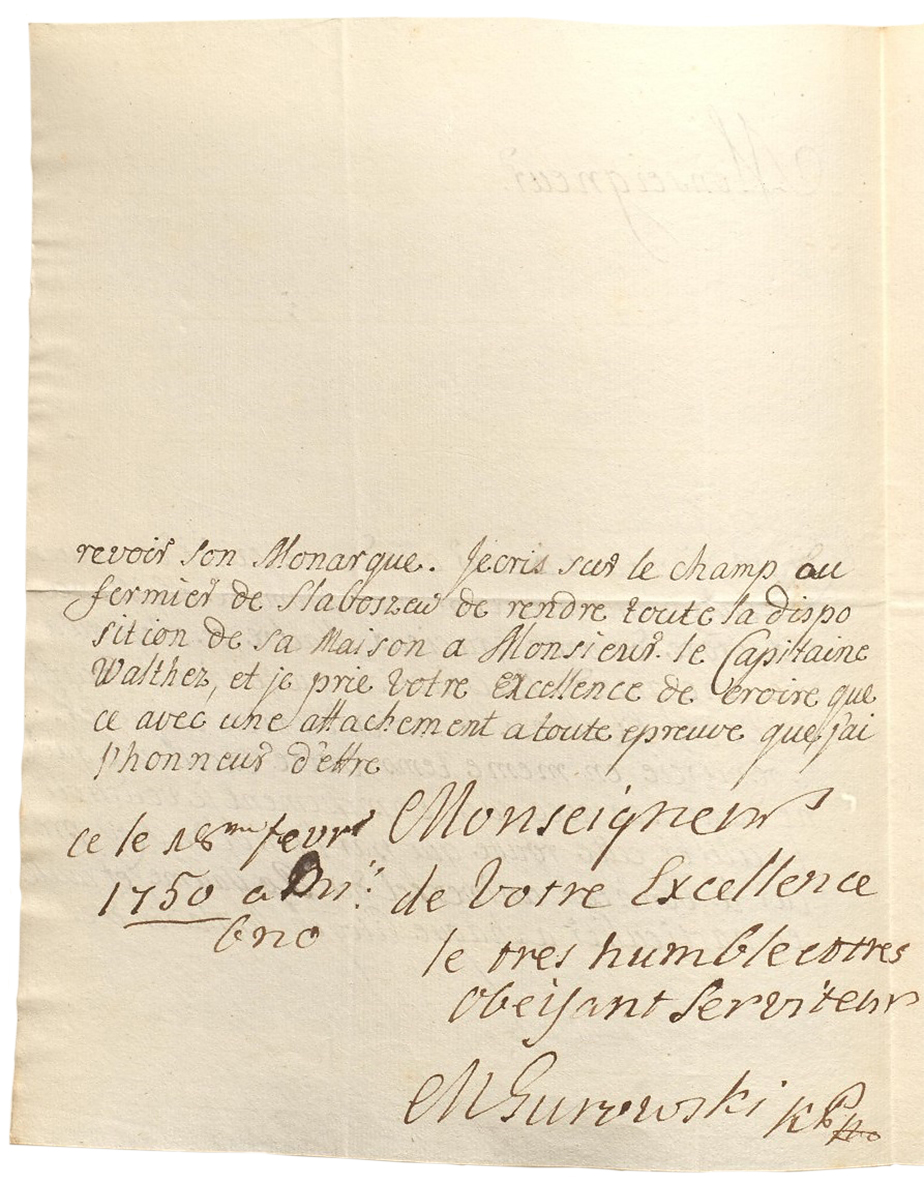 revoir son Monarque. Jécris sur le champ au
fermier de Slaboszew de rendre toute la dispo
sition de sa Maison a Monsieur le Capitaine
Walther, et je prie Votre Excellence de croire que
ce avec une attachement a toute epreuve que j'ai
l'honneur d'ettre
Monseigneur
ce le 18me fevrr
1750 a
bno
de Votre Excellence
le tres humble et tres
Obeisant Serviteur
M Gurowski
Monseigneur